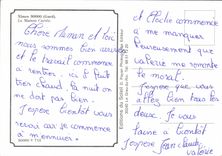 Nîmes 30000 (Gard).
La Maison Carrée
Chère Maman et toi
nous sommes bien arrivés
et le travail commence
à rentrer. ici il fait
bien chaud. la nuit on
ne dort pas bien.
J'espère bientôt vous
revoir car je commence
à m'ennuyer.
Editions du Soleil
et Cécile commence
à me manquer
heureusement que
valérie me remonte
le moral.
J'espère que vous
allez bien tous
les deux. Je vous
laisse à bientôt
j'espère Jacques
valérie